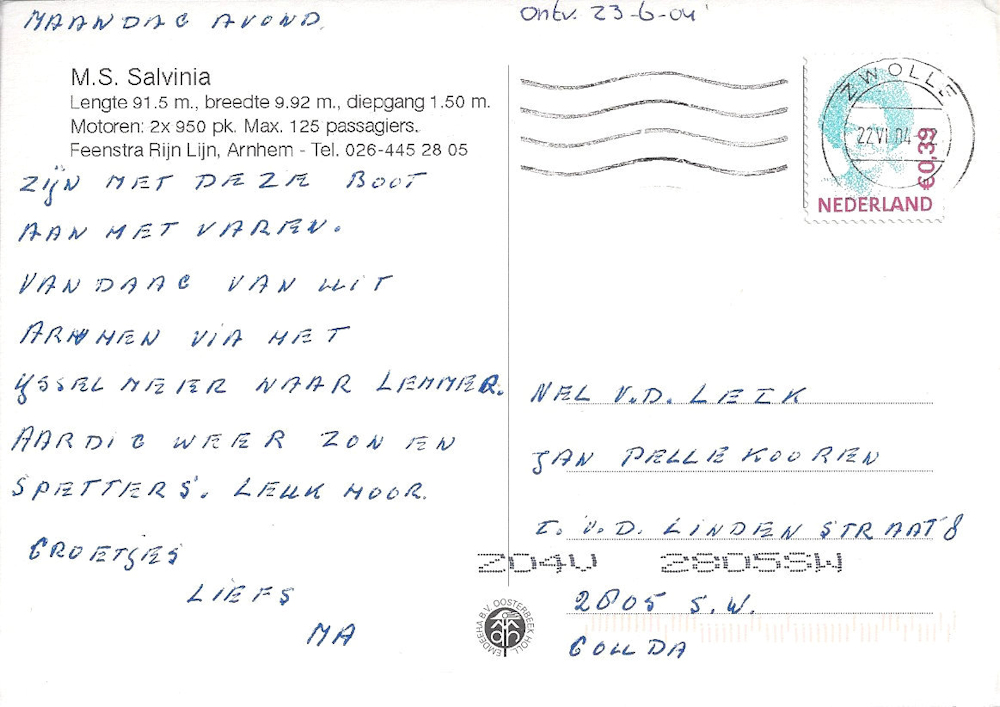 MAANDAG AVOND.
Ontv. 23-6-04
M.S. Salvinia
Lengte 91.5 m., breedte 9.92 m., diepgang 1.50 m.
Motoren: 2x 950 pk. Max. 125 passagiers.
Feenstra Rijn Lijn, Arnhem - Tel. 026-445 28 05
ZIJN MET DEZE BOOT
AAN HET VAREN.
VANDAAG VAN UIT
ARNHEM VIA HET
IJSSELMEER NAAR LEMMER.
AARDIG WEER ZON EN
SPETTERS. LEUK HOOR.
GROETJES
LIEFS
MA
ZWOLLE
22 VI 04
€0,39
NEDERLAND
NEL V.D. LEIK
JAN PELLEKOOREN
I. V.D. LINDEN STRAAT 8
ZO4U 2805SW
2805 S.W.
GOUDA
EMDEEHA B.V. OOSTERBEEK HOLL.